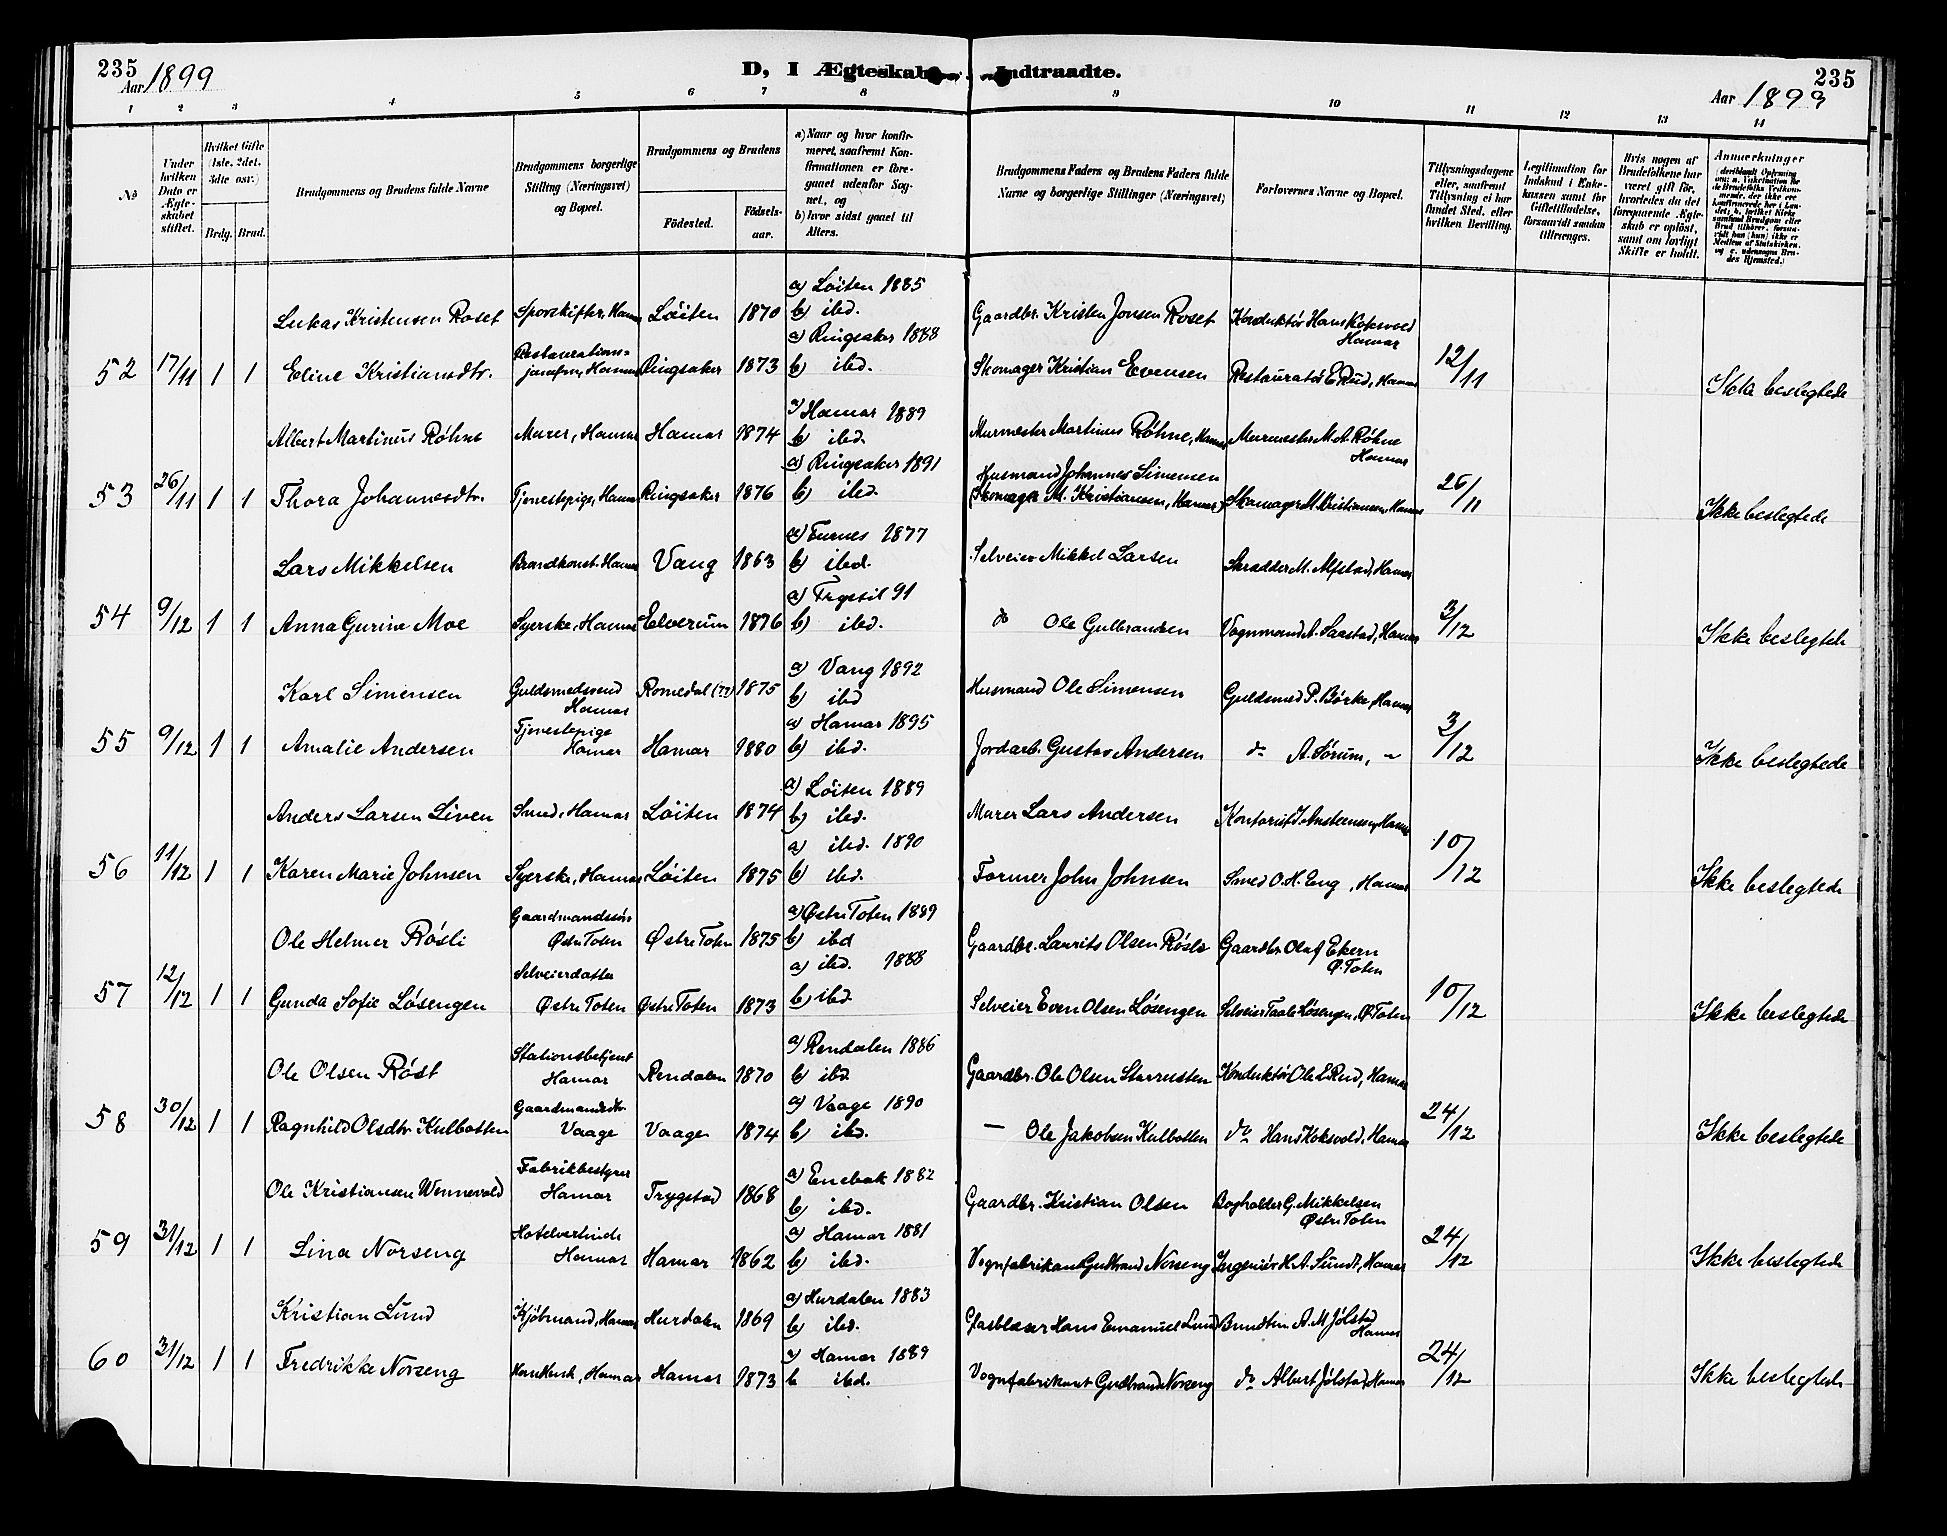 235
Aar 1899
D, I Ægteskab Indtraadte.
235
Aar 1899
1 2 3 4 5 6 7 8 9 10 11 12 13 14
№
Under hvilken Dato er Ægteskabet stiftet.
Hvilket Gifte (1ste. 2det. 3die osv.)
Brdg. Brud.
Brudgommens og Brudens fulde Navne
Brudgommens borgerlige Stilling (Næringsvei) og Bopæl.
Brudgommens og Brudens
Fødested.
Fødselsaar.
a) Naar og hvor konfirmeret, saafremt Konfirmationen er foregaaet udenfor Sognet, og
b) hvor sidst gaaet til Alters.
Brudgommens Faders og Brudens Faders fulde Navne og borgerlige Stillinger (Næringsvei)
Forlovernes Navne og Bopæl.
Tillysningsdagene eller, saafremt Tillysning ei har fundet Sted, efter hvilken Bevilling.
Legitimation for Indskud i Enkekassen samt for Giftetilladelse, forsaavidt saadan tiltrænges.
Hvis nogen af Brudefolkene har været gift før, hvorledes da det foregaaende Ægteskab er opløst, samt om lovligt Skifte er holdt.
Anmærkninger
Lukas Kristensen Roset Sporskifter, Hamar Löiten 1870 a) Löiten 1885 b) ibd. Gaardbr. Kristen Jonsen Roset Konduktör Hans Koksvold Hamar
52 17/11 1 1 Eline Kristiansdtr. Restaurationsjomfru, Hamar Ringsaker 1873 a) Ringsaker 1888 b) ibd. Skomager Kristian Evensen Restauratör E. Rud, Hamar 12/11 Ikke beslegtede
Albert Martinus Röhne Murer, Hamar Hamar 1874 a) Hamar 1889 b) ibd. Murmester Martinus Röhne, Hamar Murmester M. A. Röhne Hamar
53 26/11 1 1 Thora Johannesdtr. Tjenestepige, Hamar Ringsaker 1876 a) Ringsaker 1891 b) ibd. Husmand Johannes Simensen (Skomager M. Kristiansen, Hamar) Skomager M. Kristiansen, Hamar 26/11 Ikke beslegtede
Lars Mikkelsen Brandkonst. Hamar Vang 1863 a) Furnes 1877 b) ibd. Selveier Mikkel Larsen Skrædder M. Alfstad, Hamar
54 9/12 1 1 Anna Gurine Moe Syerske, Hamar Elverum 1876 a) Trysil 91 b) ibd. do Ole Gulbrandsen Vognmand A. Saastad, Hamar 3/12 Ikke beslegtede
Karl Simensen Guldsmedsvend Hamar Romedal (??) 1875 a) Vang 1892 b) ibd Husmand Ole Simensen Guldsmed P. Börke, Hamar
55 9/12 1 1 Amalie Andersen Tjenestepige Hamar Hamar 1880 a) Hamar 1895 b) ibd. Jordarb. Gustav Andersen do A. Sörum, - 3/12 Ikke beslegtede
Anders Larsen Liven Smed, Hamar Löiten 1874 a) Löiten 1889 b) ibd. Murer Lars Andersen Kontorist J. Anstensen, Hamar
56 11/12 1 1 Karen Marie Johnsen Syerske, Hamar Löiten 1875 a) ibd. 1890 b) ibd. Former John Johnsen Smed O. H. Eng, Hamar 10/12 Ikke beslegtede
Ole Helmer Rösli Gaardmandssön Östre Toten Östre Toten 1875 a) Östre Toten 1889 b) ibd Gaardbr. Laurits Olsen Rösli Gaardbr. Olaf Ekern Ö. Toten
57 12/12 1 1 Gunda Sofie Lösengen Selveierdatter Östre Toten Östre Toten 1873 a) ibd. 1888 b) ibd. Selveier Even Olsen Lösengen Selveier Taale Lösengen, Ö. Toten 10/12 Ikke beslegtede
Ole Olsen Röst Stationsbetjent Hamar Rendalen 1870 a) Rendalen 1886 b) ibd. Gaardbr. Ole Olsen Konduktör Ole E. Rud, Hamar
58 30/12 1 1 Ragnhild Olsdtr. Kulbotten Gaardmandsdtr. Vaage Vaage 1874 a) Vaage 1890 b) ibd. - Ole Jakobsen Kulbotten do Hans Koksvold, Hamar 24/12 Ikke beslegtede
Ole Kristiansen Wennevold Fabrikbestyrer Hamar Trygstad 1868 a) Enebak 1882 b) ibd. Gaardbr. Kristian Olsen Bogholder G. Mikkelsen Östre Toten
59 31/12 1 1 Lina Norseng Hotelvertinde Hamar Hamar 1862 a) Hamar 1881 b) ibd. Vognfabrikant Gudbrand Norseng Ingeniör H. A. Sundt, Hamar 24/12 Ikke beslegtede
Kristian Lund Kjöbmand, Hamar Hurdalen 1869 a) Hurdalen 1883 b) ibd. Glasblæser Hans Emanuel Lund Buntm. A. M. Jölstad Hamar
60 31/12 1 1 Fredrikke Norseng Hamar Hamar 1873 a) Hamar 1889 b ibd. Vognfabrikant Gudbrand Norseng do Albert Jölstad, Hamar 24/12 Ikke beslegtede